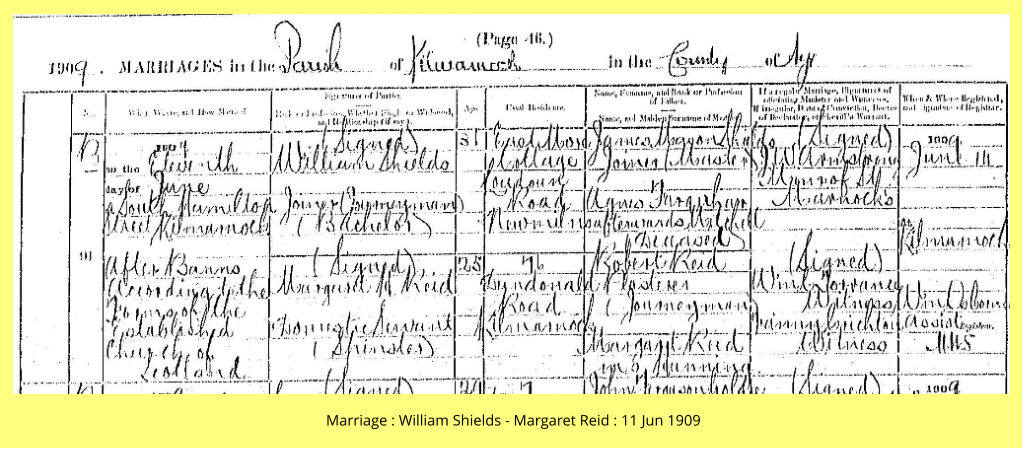 (Page 46.)
1909. MARRIAGES in the Parish of Kilmarnock in the County of Ayr
No.
When, Where, and How Married
Signatures of Parties.
Rank or Profession, Whether Single or Widowed, and Relationship (if any).
Age.
Usual Residence.
Name, Surname, and Rank or Profession of Father.
Name, and Maiden Surname of Mother.
If a regular Marriage, Signatures of officiating Minister and Witnesses.
If irregular, Date of Conviction, Decree of Declarator, or Sheriff's Warrant.
When & Where Registered, and Signature of Registrar.
1909
on the Eleventh
day of June
South Hamilton
Street Kilmarnock
After Banns
according to the
Forms of the
Established
Church of
Scotland
(Signed)
William Shields
Joiner (Journeyman)
(Bachelor)
(Signed)
Margaret Reid
Domestic Servant
(Spinster)
31
25
Cottage
Road
Newmilns
76
Dundonald
Road
Kilmarnock
James Shields
Joiner (Master)
Agnes Farquhar
afterwards Mitchell
(Deceased)
Robert Reid
Plasterer
(Journeyman)
Margaret Reid
m.s. Dunning
(Signed)
J. W. Armstrong
Minr of St
Marnock's
(Signed)
Torrance
Witness
Crichton
Witness
1909
June 14
At
Kilmarnock
Wm Osborne
Assist Registrar.
91
(Signed)
(Signed)
1909
Marriage : William Shields - Margaret Reid : 11 Jun 1909